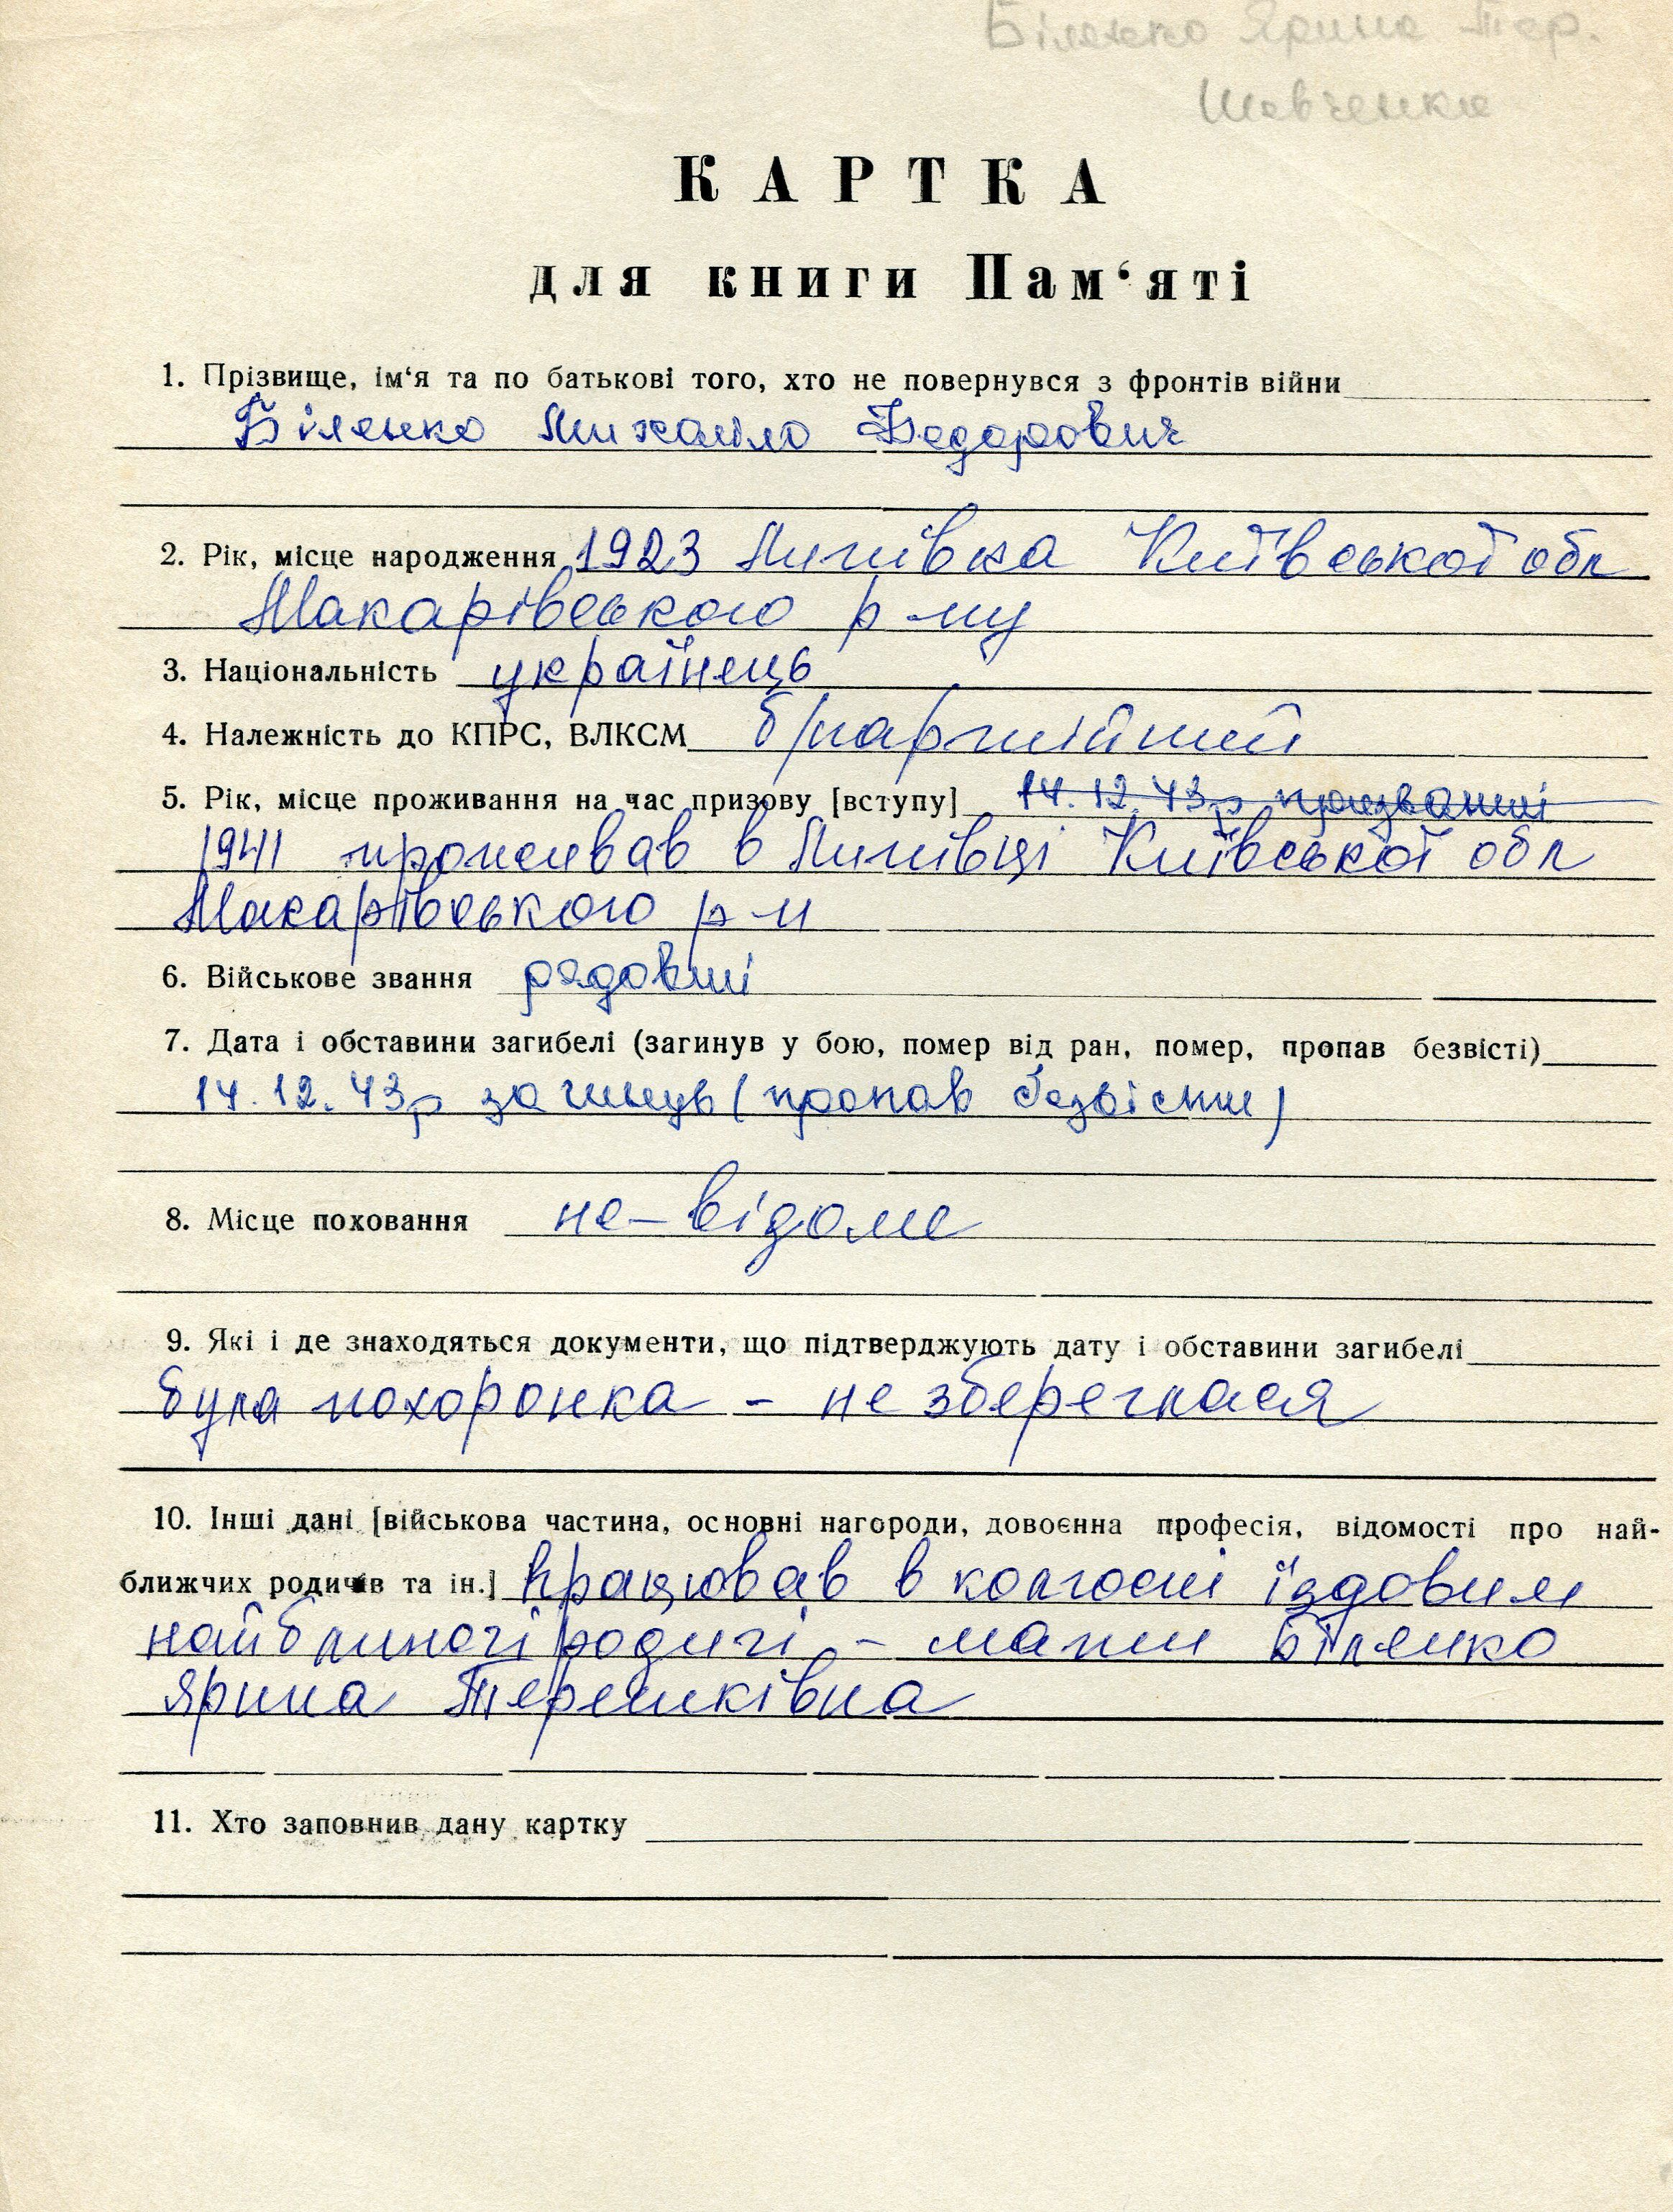 Біленко Ярина Тер.
Шевченка
КАРТКА
для книги Пам‘яті
1. Прізвище, ім‘я та по батькові того, хто не повернувся з фронтів війни
Біленко Михайло Федорович
2. Рік, місце народження 1923 Липівка Київської обл
Макарівського р-ну
3. Національність українець
4. Належність до КПРС, ВЛКСМ б/партійний
5. Рік, місце проживання на час призову [вступу] 14.12.43р призваний
1941 проживав в Липівці Київської обл
Макарівського р-н
6. Військове звання рядовий
7. Дата і обставини загибелі (загинув у бою, помер від ран, помер, пропав безвісті)
14.12.43р загинув (пропав безвісти)
8. Місце поховання не-відоме
9. Які і де знаходяться документи, що підтверджують дату і обставини загибелі
була похоронка - не збереглася
10. Інші дані [військова частина, основні нагороди, довоєнна професія, відомості про най-
ближчих родичів та ін.] працював в колгоспі їздовим
найближчі родичі - мати Біленко
Ярина Терешківна
11. Хто заповнив дану картку